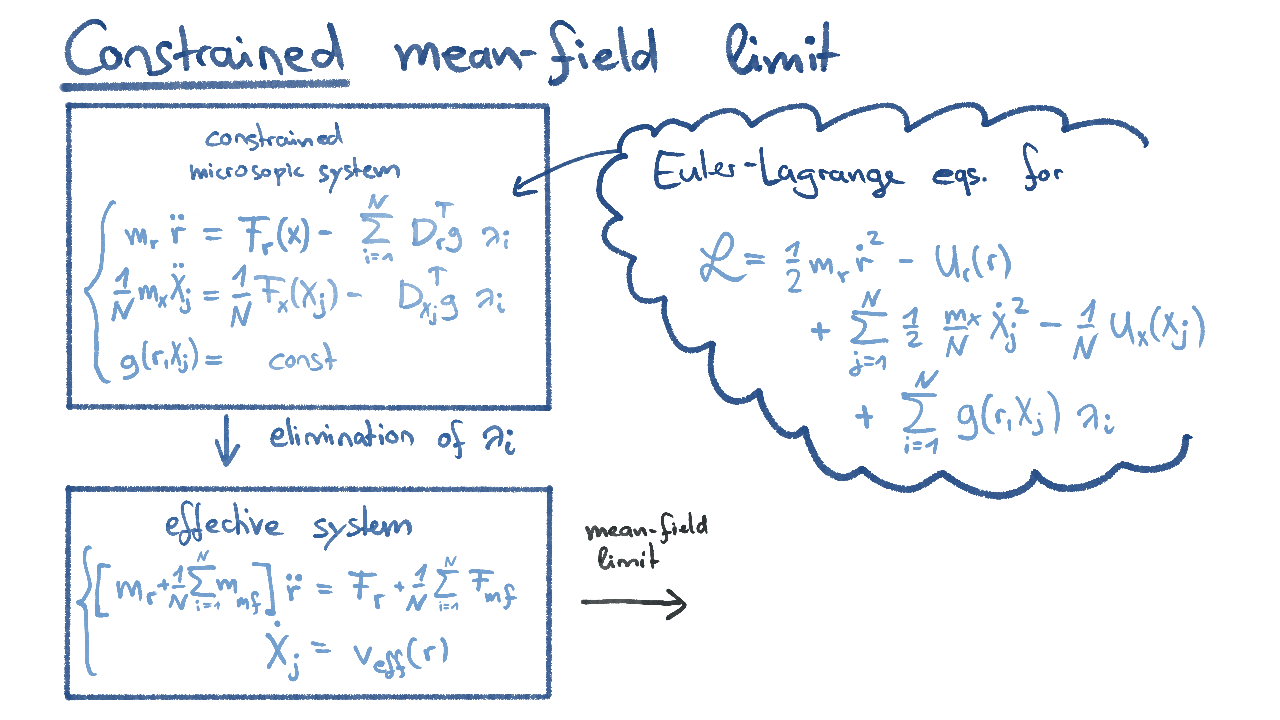 Constrained mean-field limit
constrained
microsopic system
m_r r̈ = F_r(x) - ∑_{i=1}^{N} D_r^T g λ_i
1/N m_x Ẍ_j = 1/N F_x(X_j) - D_{X_j}^T g λ_i
g(r,X_j) = const
Euler-Lagrange eqs. for
ℒ = 1/2 m_r ṙ² - U_r(r)
+ ∑_{j=1}^{N} 1/2 m_x/N Ẋ_j² - 1/N U_x(X_j)
+ ∑_{i=1}^{N} g(r,X_j) λ_i
elimination of λ_i
effective system
[m_r + 1/N ∑_{i=1}^{N} m_{mf}] r̈ = F_r + 1/N ∑_{i=1}^{N} F_{mf}
Ẋ_j = v_{eff}(r)
mean-field
limit